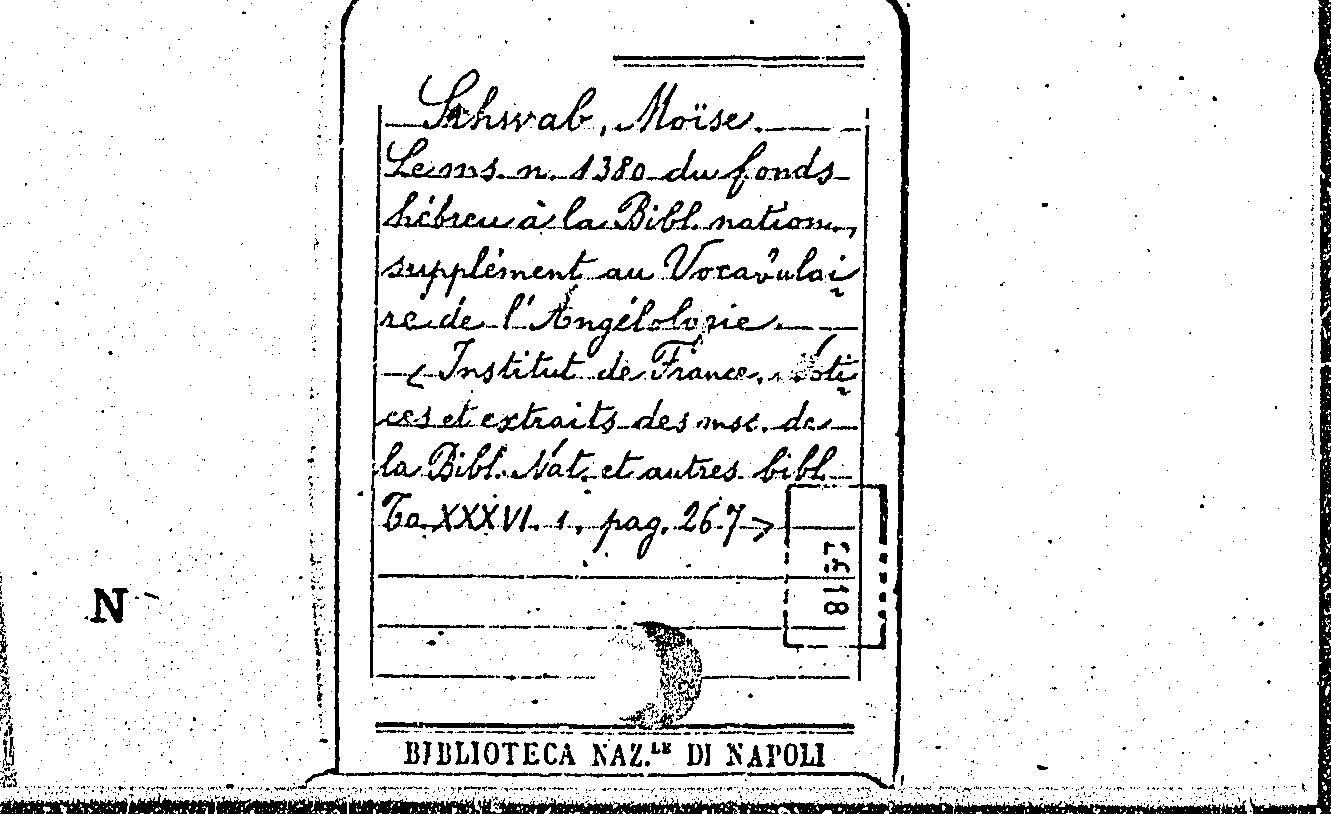 Schwab, Moïse.
Le ms. n. 1380 du fonds
hébreu à la Bibl. nation.,
supplément au Vocabulai
re de l'Angélologie.
( Institut de France. Noti
ces et extraits des msc. de
la Bibl. Nat. et autres bibl.
To. XXXVI. 1, pag. 267 >
18
N
BIBLIOTECA NAZ.LE DI NAPOLI